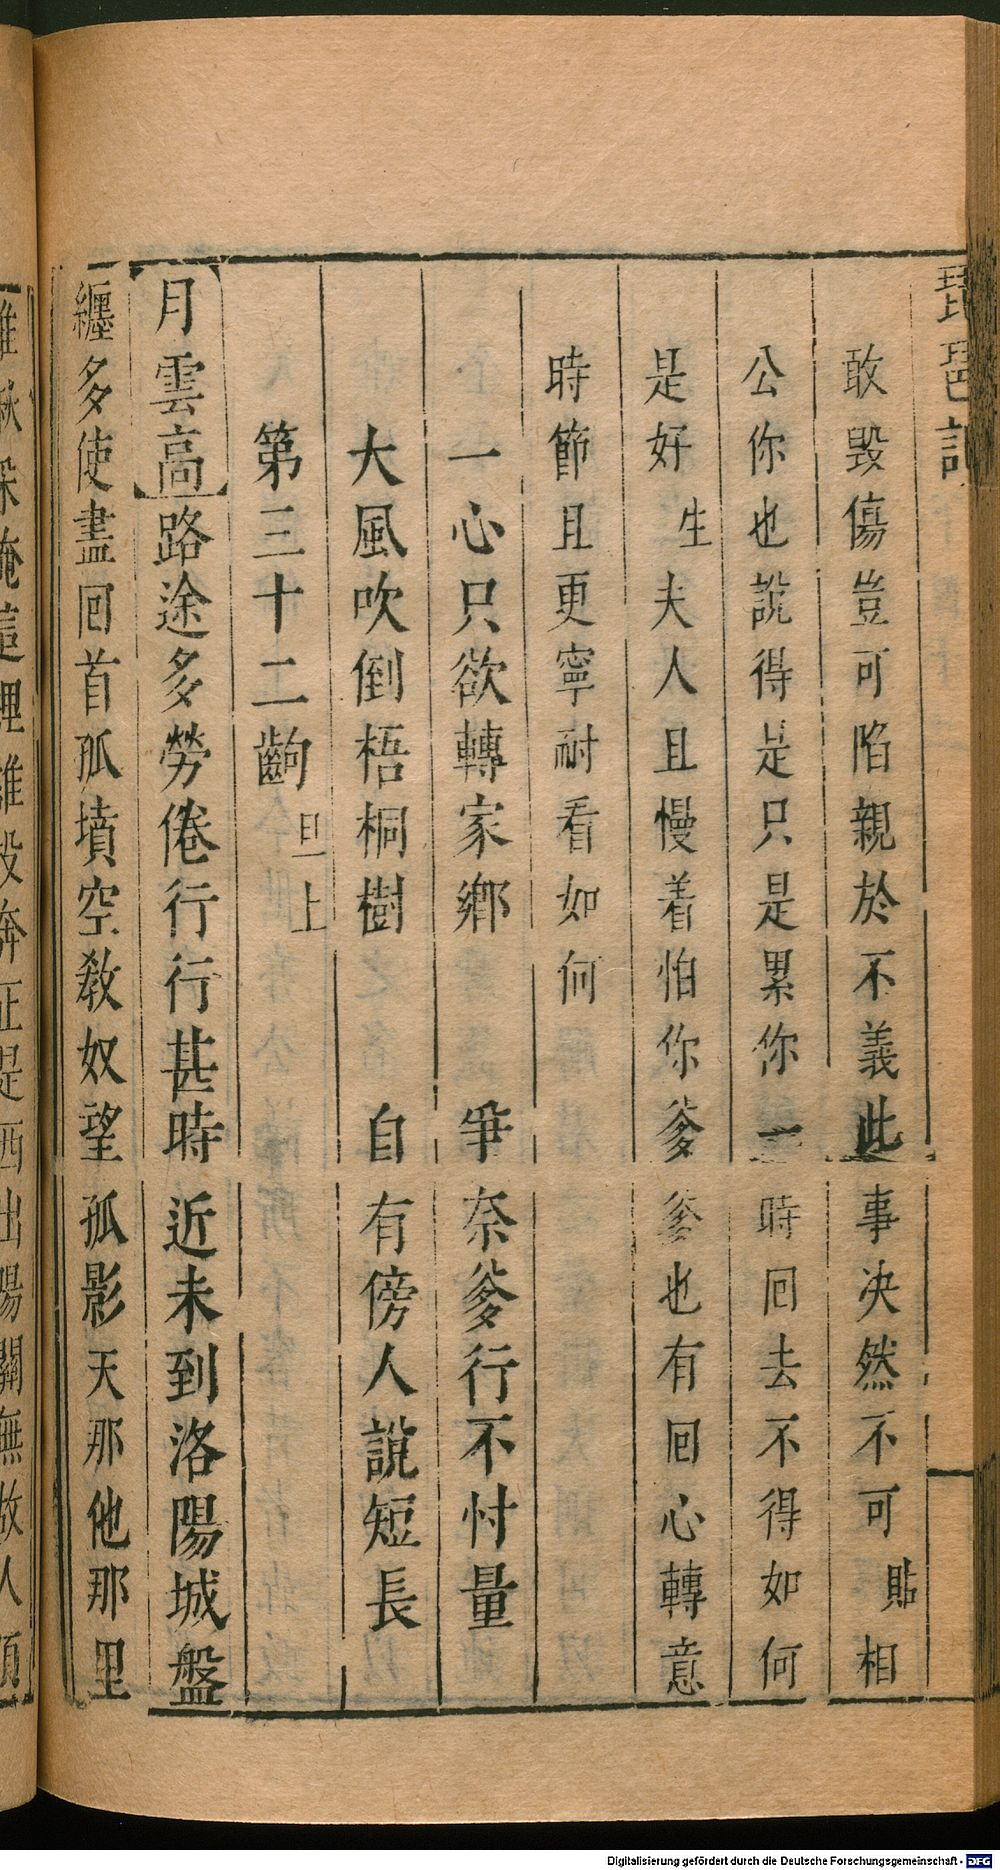 琵琶記
敢毀傷豈可陷親於不義此事决然不可貼相
公你也說得是只是累你一時回去不得如何
是好生夫人且慢着怕你爹爹也有回心轉意
時節且更寧耐看如何
一心只欲轉家鄉　爭奈爹行不忖量
大風吹倒梧桐樹　自有傍人說短長
第三十二齣旦上
月雲高路途多勞倦行行甚時近未到洛陽城盤
纏多使盡回首孤墳空敎奴望孤影天那他那里
誰秋保俺這裡誰投奔正是西出陽關無故人須
Digitalisierung gefördert durch die Deutsche Forschungsgemeinschaft - DFG